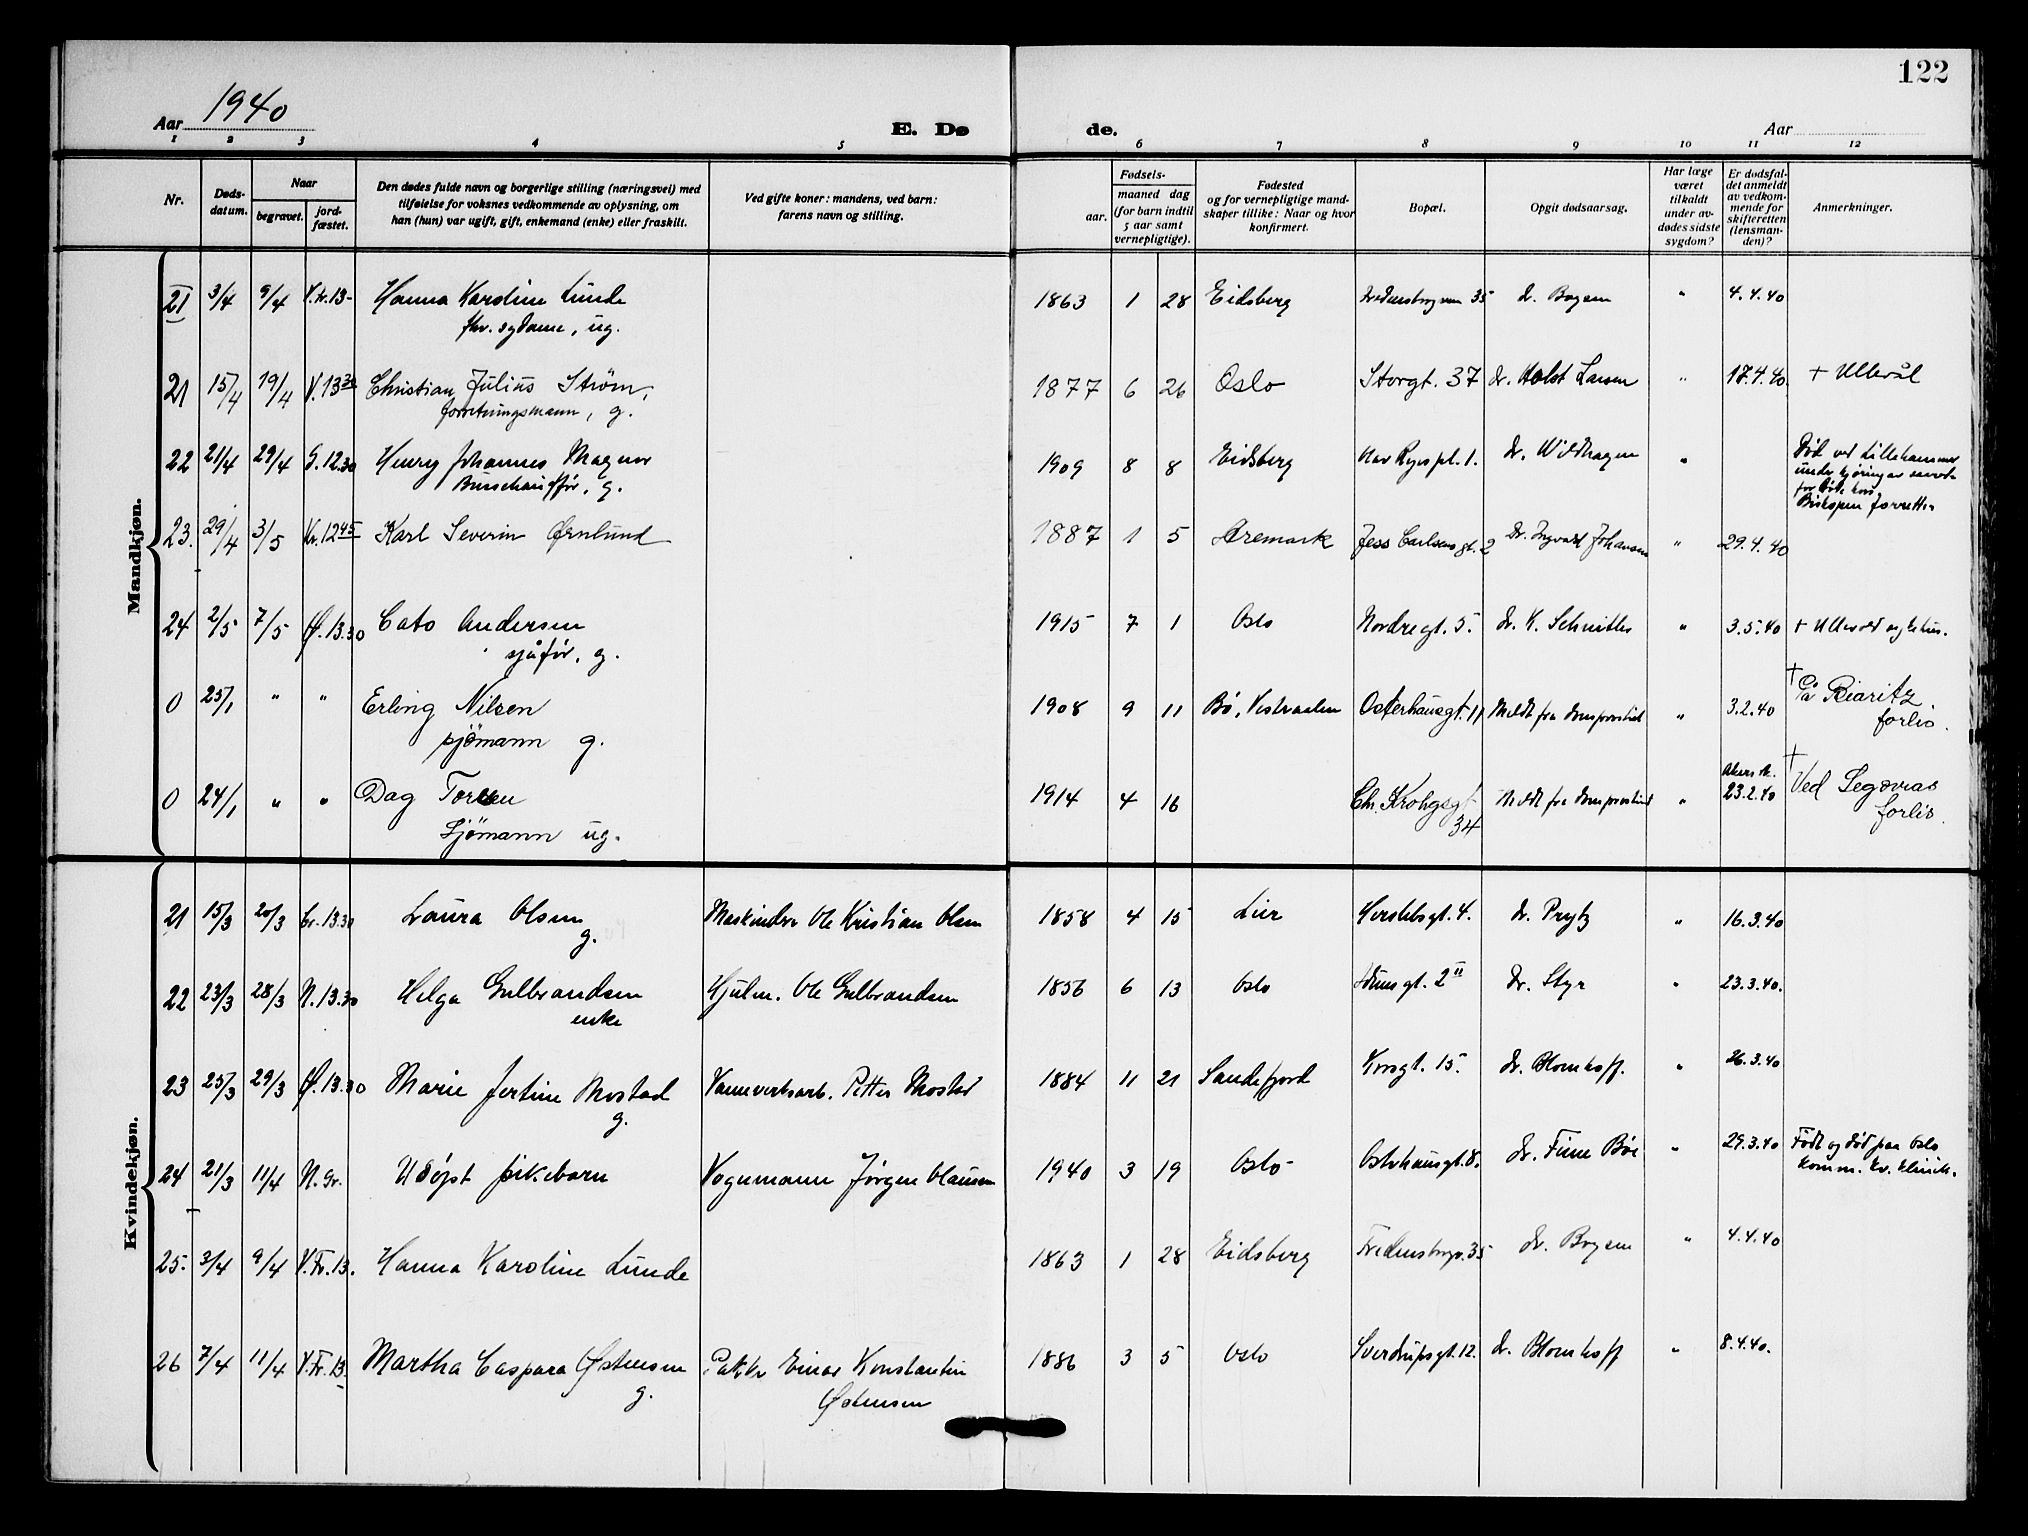 122
Aar 1940
E. Dø de.
Aar
1 2 3 4 5 6 7 8 9 10 11 12
Nr.
Døds-
datum.
Naar
begravet.
jord-
fæstet.
Den dødes fulde navn og borgerlige stilling (næringsvei) med
tilføielse for voksnes vedkommende av oplysning, om
han (hun) var ugift, gift, enkemand (enke) eller fraskilt.
Ved gifte koner: mandens, ved barn:
farens navn og stilling.
Fødsels-
aar.
maaned dag
(for barn indtil
5 aar samt
vernepligtige).
Fødested
og for vernepligtige mand-
skaper tillike: Naar og hvor
konfirmert.
Bopæl.
Opgit dødsaarsag.
Har læge
været
tilkaldt
under av-
dødes sidste
sygdom?
Er dødsfal-
det anmeldt
av vedkom-
mende for
skifteretten
(lensman-
den)?
Anmerkninger.
Mandkjøn.
21 3/4 9/4 V.Fr.13- Hanna Karoline Lunde 1863 1 28 Eidsberg 35 dr. Bogen " 4.4.40
fhv. sydame, ug.
21 15/4 19/4 V.13 30 Christian Julius Strøm, 1877 6 26 Oslo Storgt. 37 dr. Holst Larsen " 17.4.40 + Ullevål
forretningsmann, g.
22 21/4 29/4 G.12.30 Henry Johannes Magnor 1909 8 8 Eidsberg Olav Ryes pl. 1. dr. Wildhagen " Død ved Lillehammer
Busschauffør, g. under kjøring av
for
Bispen forretter
23. 29/4 3/5 Kr.12 45 Karl Severin Ørnlund 1887 1 5 Aremark Jess Carlsens gt. 2 Dr. Ingvald Johansen " 29.4.40
24 2/5 7/5 Ø.13.30 Cato Andersen 1915 7 1 Oslo Nordregt. 5. dr. K. Schnitler " 3.5.40 + Ullevål sykehus.
sjåfør, g.
0 25/1 " " Erling Nilsen 1908 9 11 Bø, Vesteraalen Osterhausgt. 11 Meldt fra domprostiet " 3.2.40 + På Biaritz
sjømann g. forlis.
0 24/1 " " Dag Torsen 1914 4 16 Ch. Krohgsgt. 34 Meldt fra domprostiet " Akers sk. 23.2.40 + Ved Segovias
Sjømann ug. forlis.
Kvindekjøn.
21 15/3 20/3 Gr.13.30 Laura Olsen Maskinder Ole Kristian Olsen 1858 4 15 Lier Herslebsgt. 4. dr. Prytz " 16.3.40
g.
22 23/3 28/3 N.13.30 Helga Gulbrandsen Hjulm. Ole Gulbrandsen 1856 6 13 Oslo gt. 2 II dr. Styr " 23.3.40.
enke
23 25/3 29/3 Ø.13.30 Marie Jertine Mostad Vannverksarb. Petter Mostad 1884 11 21 Sandefjord Korsgt. 15. dr. Blomhoff. " 26.3.40
g.
24 21/3 11/4 N.Gr. Udøpt pikebarn Vognmann Jørgen Clausen 1940 3 19 Oslo Osterhausgt. 8. dr. Finne Bøe " 29.3.40 Født og død paa Oslo
komm. kv. klinik.
25. 3/4 9/4 V.Fr.13. Hanna Karoline Lunde 1863 1 28 Eidsberg Fredensborgv. 35 dr. Bogen " 4.4.40
26 7/4 11/4 V.Fr.13 Martha Caspara Østensen Pakker Einar Konstantin 1886 3 5 Oslo Sverdrupsgt. 12. dr. Blomhoff " 8.4.40.
g. Østensen